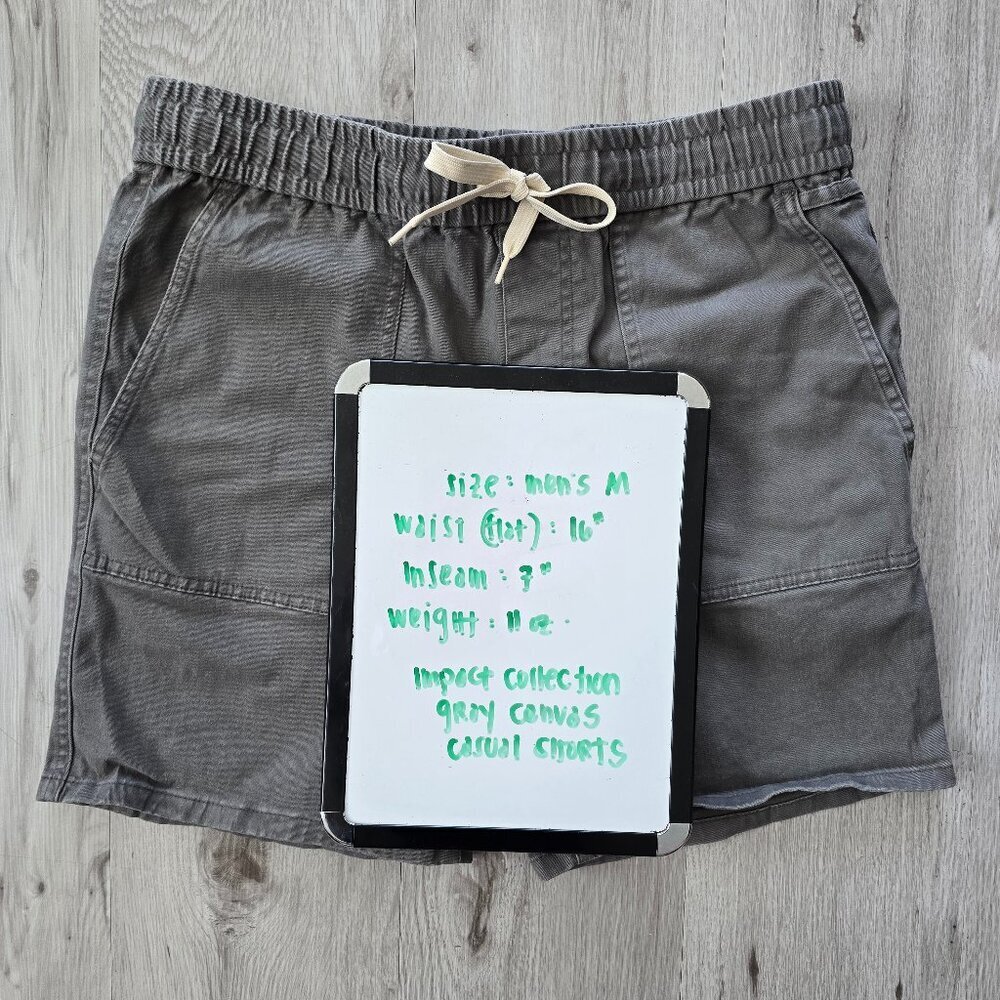 size: men's M
waist (flat): 16"
Inseam: 7"
weight: 11 oz.
Impact collection
gray canvas
casual shorts